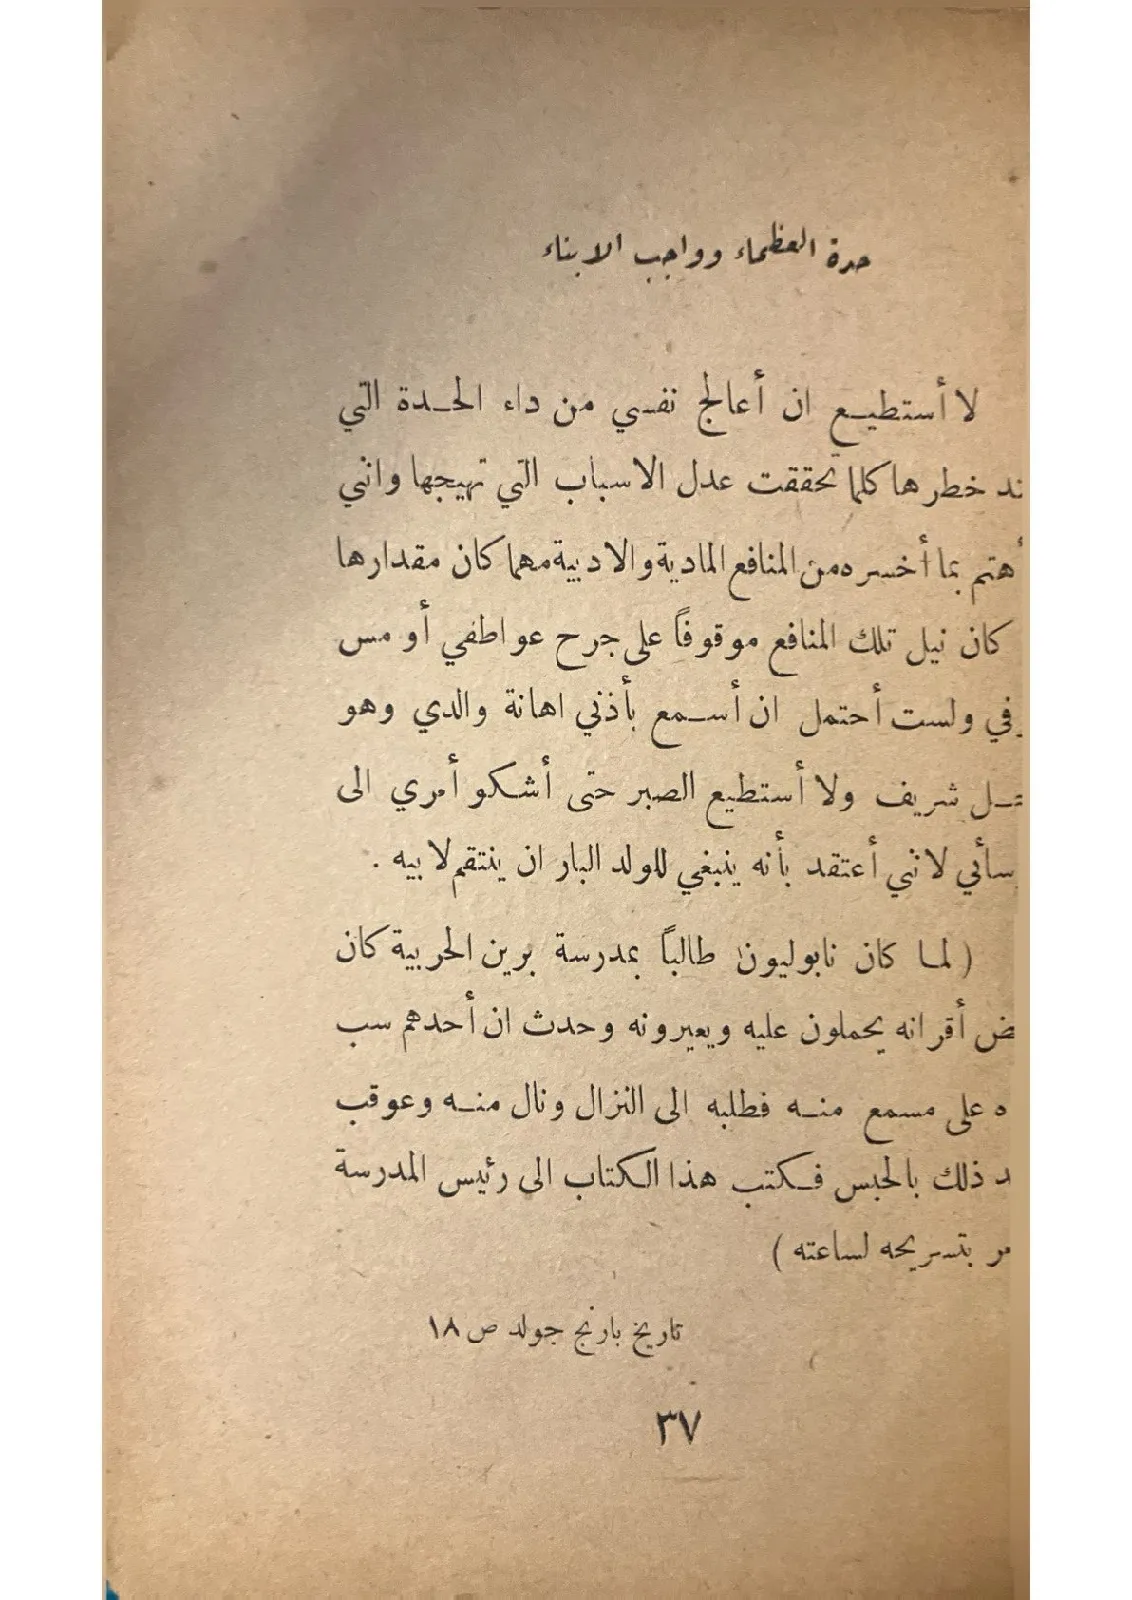 حدة العظماء وواجب الابناء
لا أستطيع ان أعالج نفسي من داء الحدة التي
خطرها كلما تحققت عدل الاسباب التي تهيجها وانني
أهتم بما أخسره من المنافع المادية والادبية مهما كان مقدارها
كان نيل تلك المنافع موقوفاً على جرح عواطفي أو مس
ولست أحتمل ان أسمع بأذني اهانة والدي وهو
شريف ولا أستطيع الصبر حتى أشكو أمري الى
لانني أعتقد بأنه ينبغي للولد البار ان ينتقم لابيه .
( لما كان نابوليون طالباً بمدرسة برين الحربية كان
أقرانه يحملون عليه ويعيرونه وحدث ان أحدهم سب
على مسمع منه فطلبه الى النزال ونال منه وعوقب
ذلك بالحبس فكتب هذا الكتاب الى رئيس المدرسة
بتسريحه لساعته )
تاريخ بارنج جولد ص ١٨
٣٧